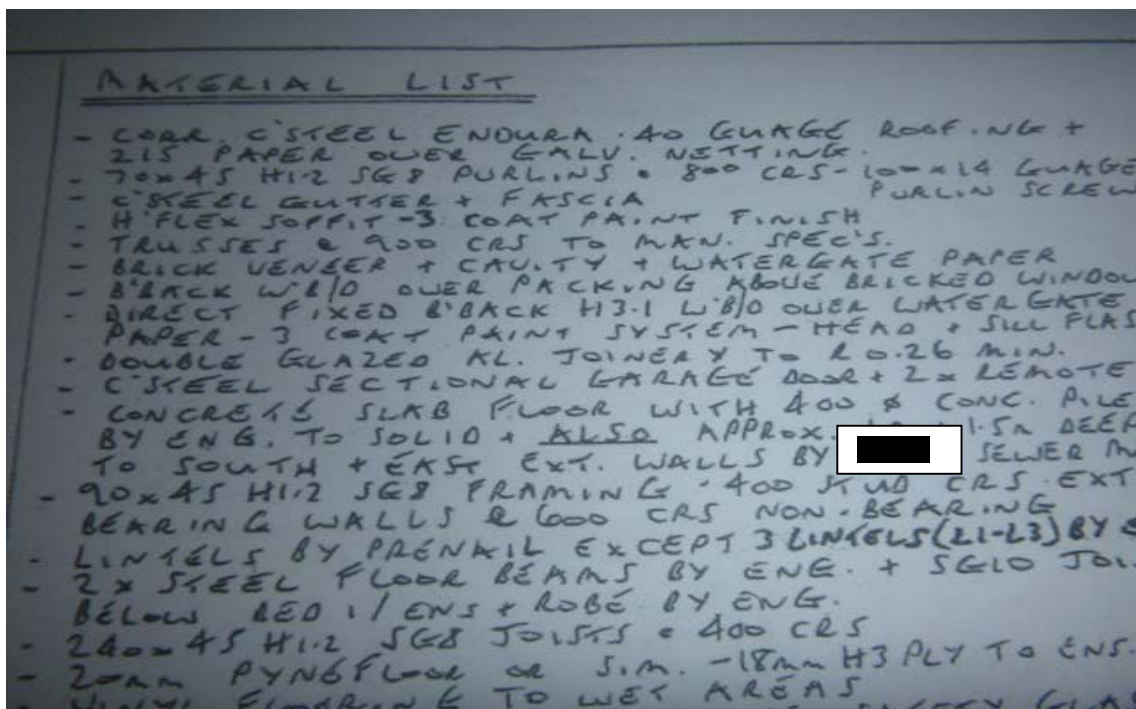 MATERIAL LIST
- CORR. C'STEEL ENDURA .40 GUAGE ROOFING +
215 PAPER OVER GALV. NETTING.
- 70x45 H1.2 SG8 PURLINS @ 800 CRS - 100x14 GUAGE
PURLIN SCREW
- C'STEEL GUTTER + FASCIA
- H'FLEX SOFFIT - 3 COAT PAINT FINISH
- TRUSSES @ 900 CRS TO MAN. SPEC'S.
- BRICK VENEER + CAVITY + WATERGATE PAPER
- B'BACK W'B/D OVER PACKING ABOVE BRICKED WINDOW
- DIRECT FIXED B'BACK H3.1 W'B/D OVER WATERGATE
PAPER - 3 COAT PAINT SYSTEM - HEAD + SILL FLAS
- DOUBLE GLAZED AL. JOINERY TO R0.26 MIN.
- C'STEEL SECTIONAL GARAGE DOOR + 2x REMOTE
- CONCRETE SLAB FLOOR WITH 400 ø CONC. PILE
BY ENG. TO SOLID + ALSO APPROX. 1.5m DEEP
TO SOUTH + EAST EXT. WALLS BY SEWER M
- 90x45 H1.2 SG8 FRAMING - 400 STUD CRS EXT
BEARING WALLS & 600 CRS NON-BEARING
- LINTELS BY PRENAIL EXCEPT 3 LINTELS (L1-L3) BY
- 2x STEEL FLOOR BEAMS BY ENG. + SG10 JOI
BELOW BED 1/ENS + ROBE BY ENG.
- 240x45 H1.2 SG8 JOISTS @ 400 CRS
- 20mm PYNEFLOOR OR SIM. - 18mm H3 PLY TO ENS.
- VINYL FLOORING TO WET AREAS